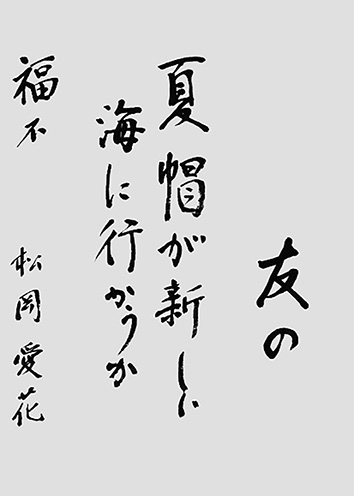 友の
夏帽が新しい
海に行かうか
福不 松岡愛花